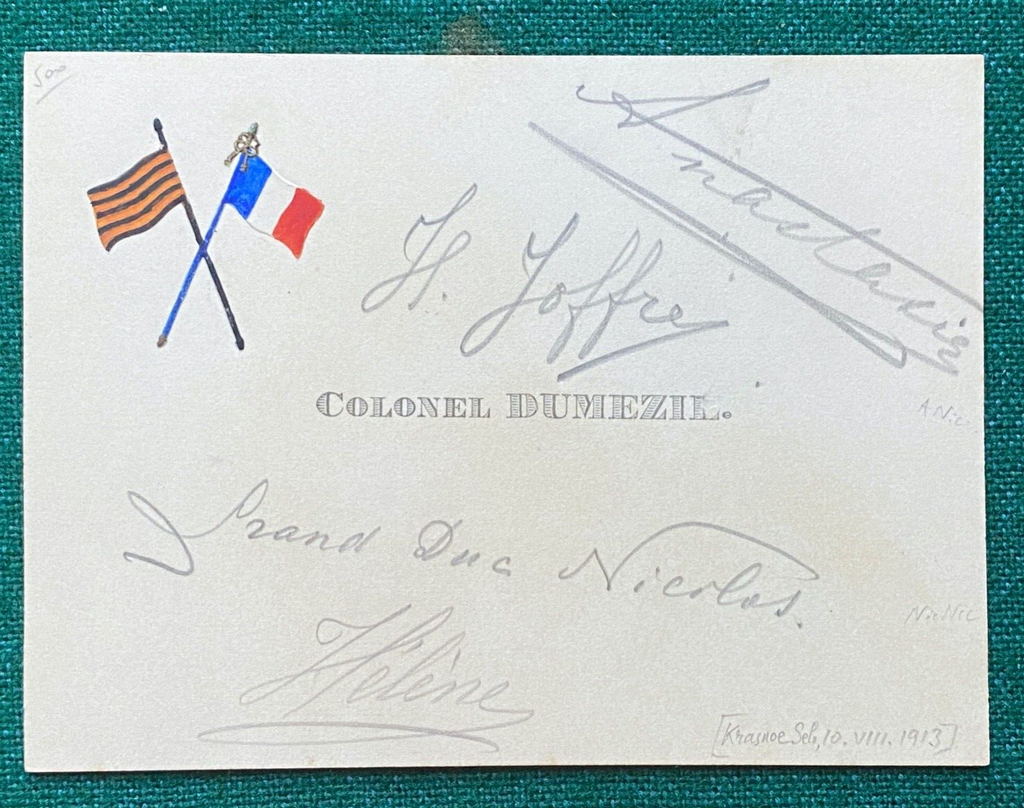 500
Anastasia
H. Joffre
COLONEL DUMEZIL.
A. Nic.
Grand Duc Nicolas.
Nic Nic
Hélène
[Krasnoe Selo, 10. VIII. 1913]